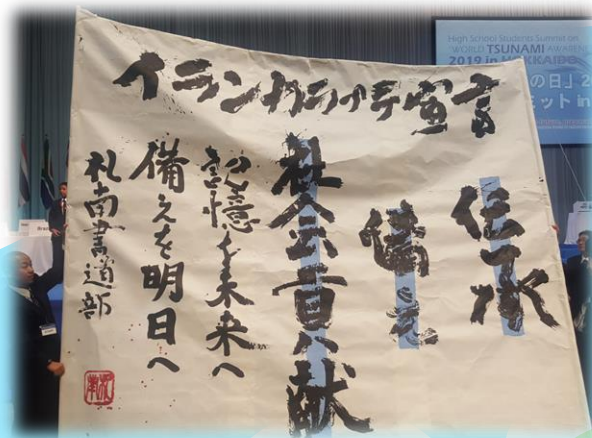 High School Students Summit on
"WORLD TSUNAMI AWAREN
2019 in HOKKAIDO
の日」2
ミット in
イランカラプテ宣言
伝承
備え
社会貢献
記憶を未来へ
備えを明日へ
札南書道部